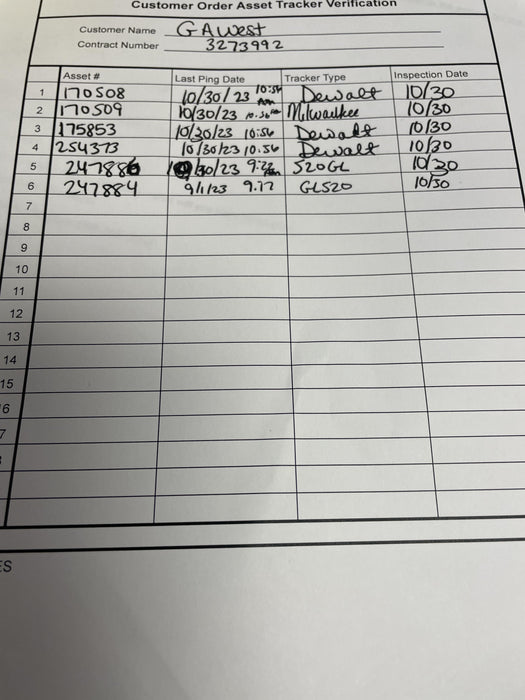 Customer Order Asset Tracker Verification
Customer Name GA West
Contract Number 3273992
Asset # Last Ping Date Tracker Type Inspection Date
1 170508 10/30/23 10:56 Am Dewalt 10/30
2 170509 10/30/23 10.56 Am Milwaukee 10/30
3 175853 10/30/23 10:56 Dewalt 10/30
4 254373 10/30/23 10.56 Dewalt 10/30
5 247886 10/30/23 9:22 Am 520GL 10/30
6 247884 9/1/23 9.17 GL520 10/30
7
8
9
10
11
12
13
14
15
6
7
ES